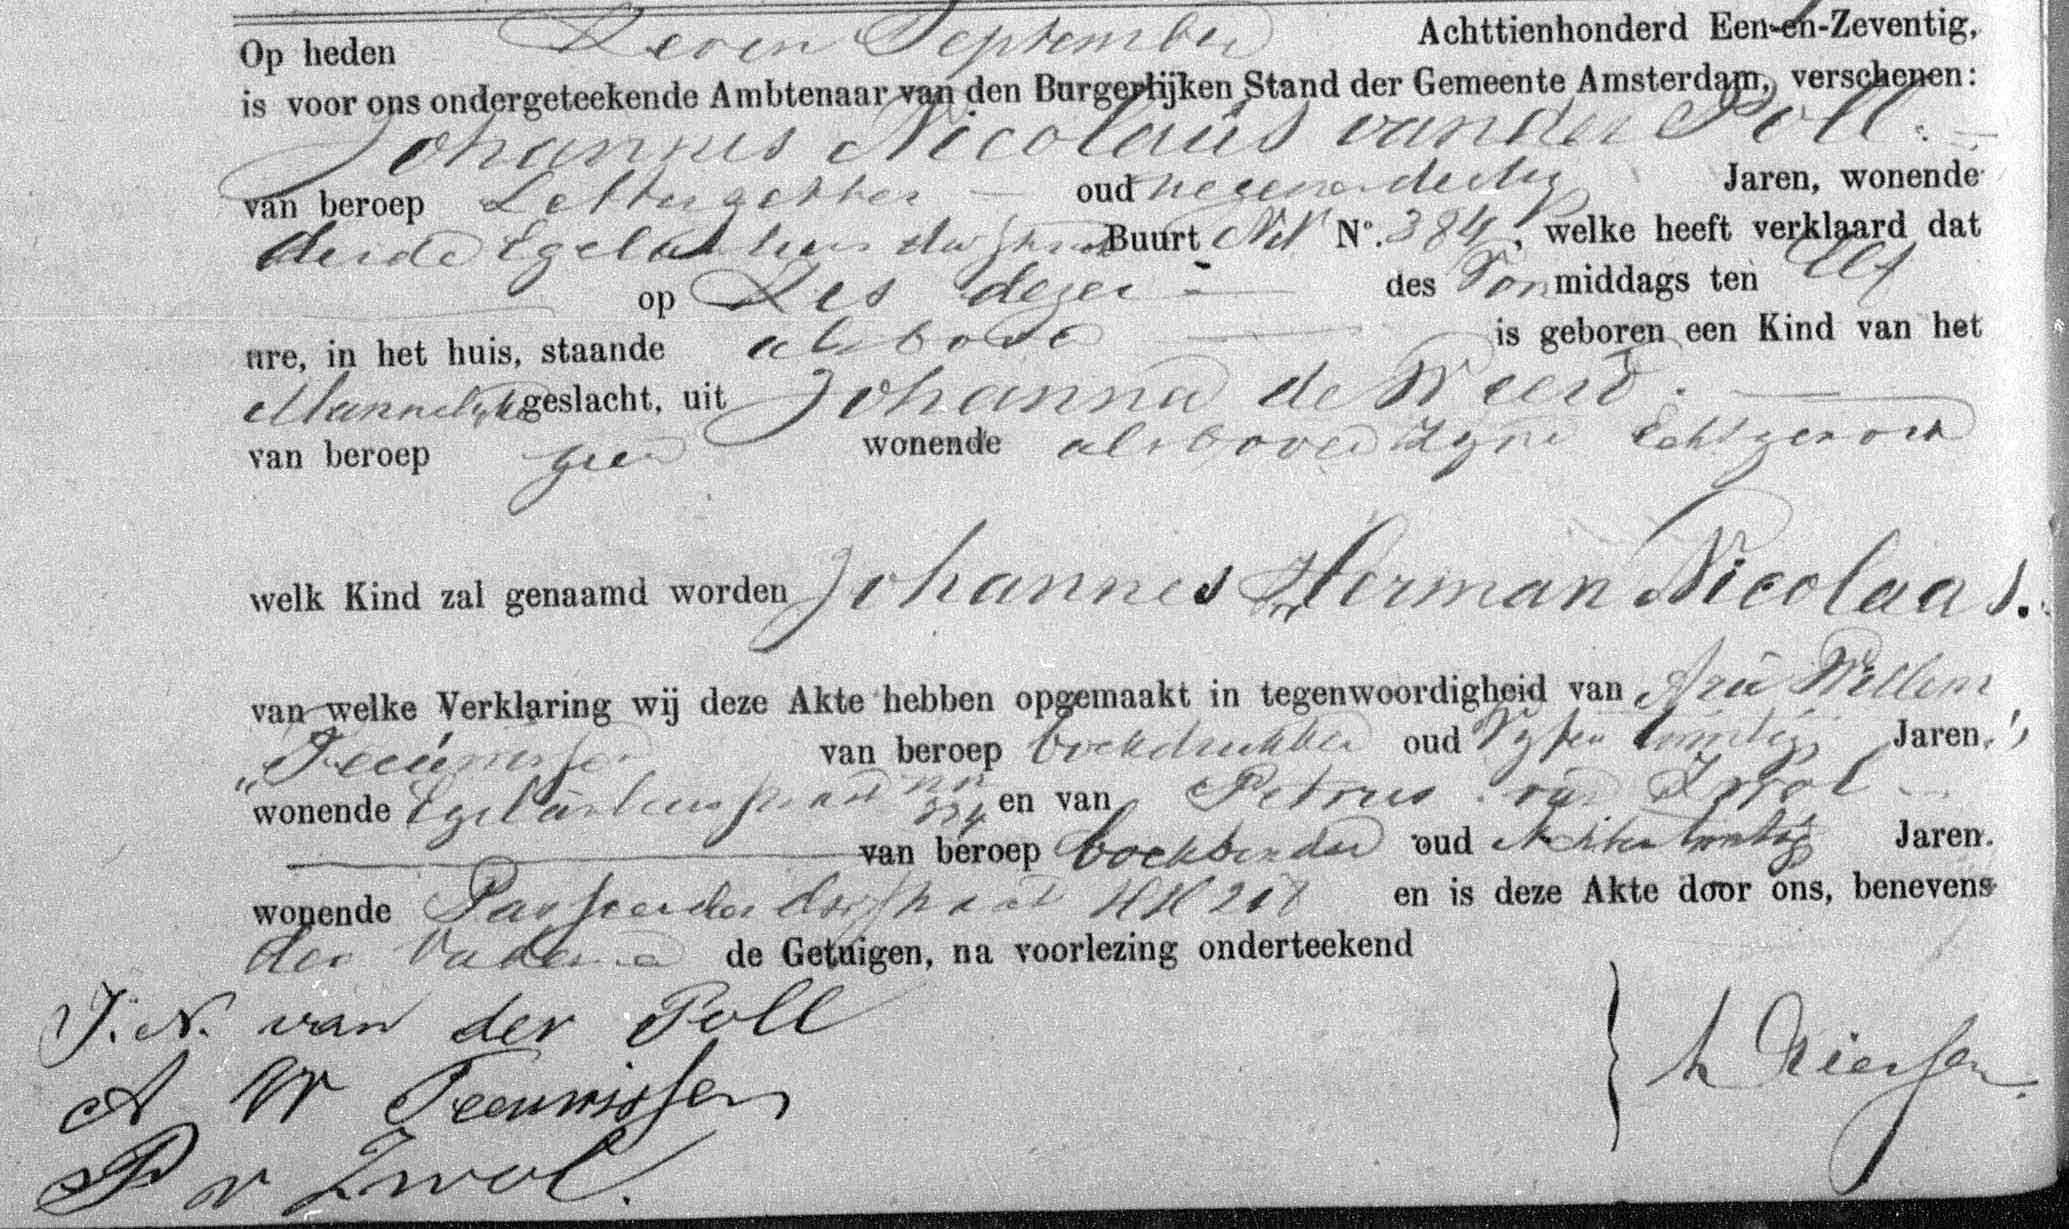 Op heden Zeven September Achttienhonderd Een-en-Zeventig,
is voor ons ondergeteekende Ambtenaar van den Burgerlijken Stand der Gemeente Amsterdam, verschenen:
Johannes Nicolaus van der Poll.
van beroep Letterzetter oud negenendertig Jaren, wonende
derde Egelantiersdwarsstraat Buurt No. 384, welke heeft verklaard dat
op Zes dezer des Voormiddags ten Elf
ure, in het huis, staande alsboven is geboren een Kind van het
Mannelijke geslacht, uit Johanna de Weerd.
van beroep geen wonende alsboven zijne Echtgenoote
welk Kind zal genaamd worden Johannes Herman Nicolaas.
van welke Verklaring wij deze Akte hebben opgemaakt in tegenwoordigheid van Arie Willem
Teeuwissen van beroep boekdrukker oud Vijfentwintig Jaren,
wonende Egelantiersstraat en van Petrus van Zwol
van beroep boekbinder oud Achtentwintig Jaren.
wonende Passeerderdwarsstraat KK 217 en is deze Akte door ons, benevens
den Vader en de Getuigen, na voorlezing onderteekend
J. N. van der Poll
A W Teeuwissen
P v Zwol.